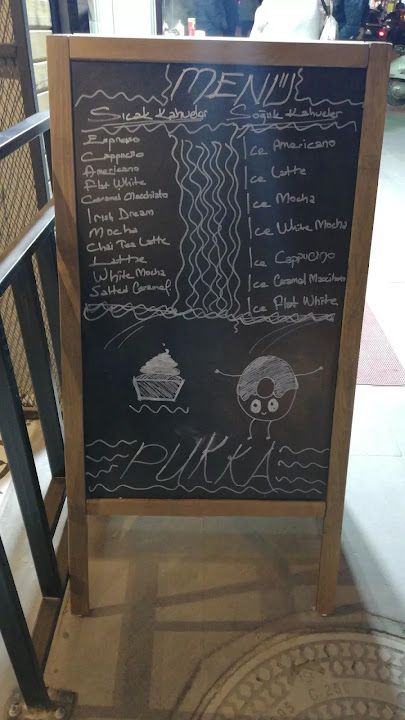 MENÜ
Sıcak Kahveler
Espresso
Cappucino
Americano
Flat White
Caramel Macchiato
Irish Dream
Mocha
Chai Tea Latte
Latte
White Mocha
Salted Caramel
Soğuk Kahveler
Ice Americano
Ice Latte
Ice Mocha
Ice White Mocha
Ice Cappucino
Ice Caramel Macchiato
Ice Flat White
PUKKA